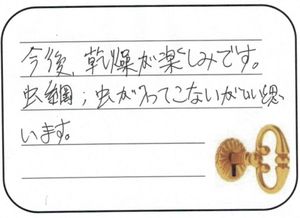 今後、乾燥が楽しみです。
虫網；虫が入ってこないがいいと思
います。